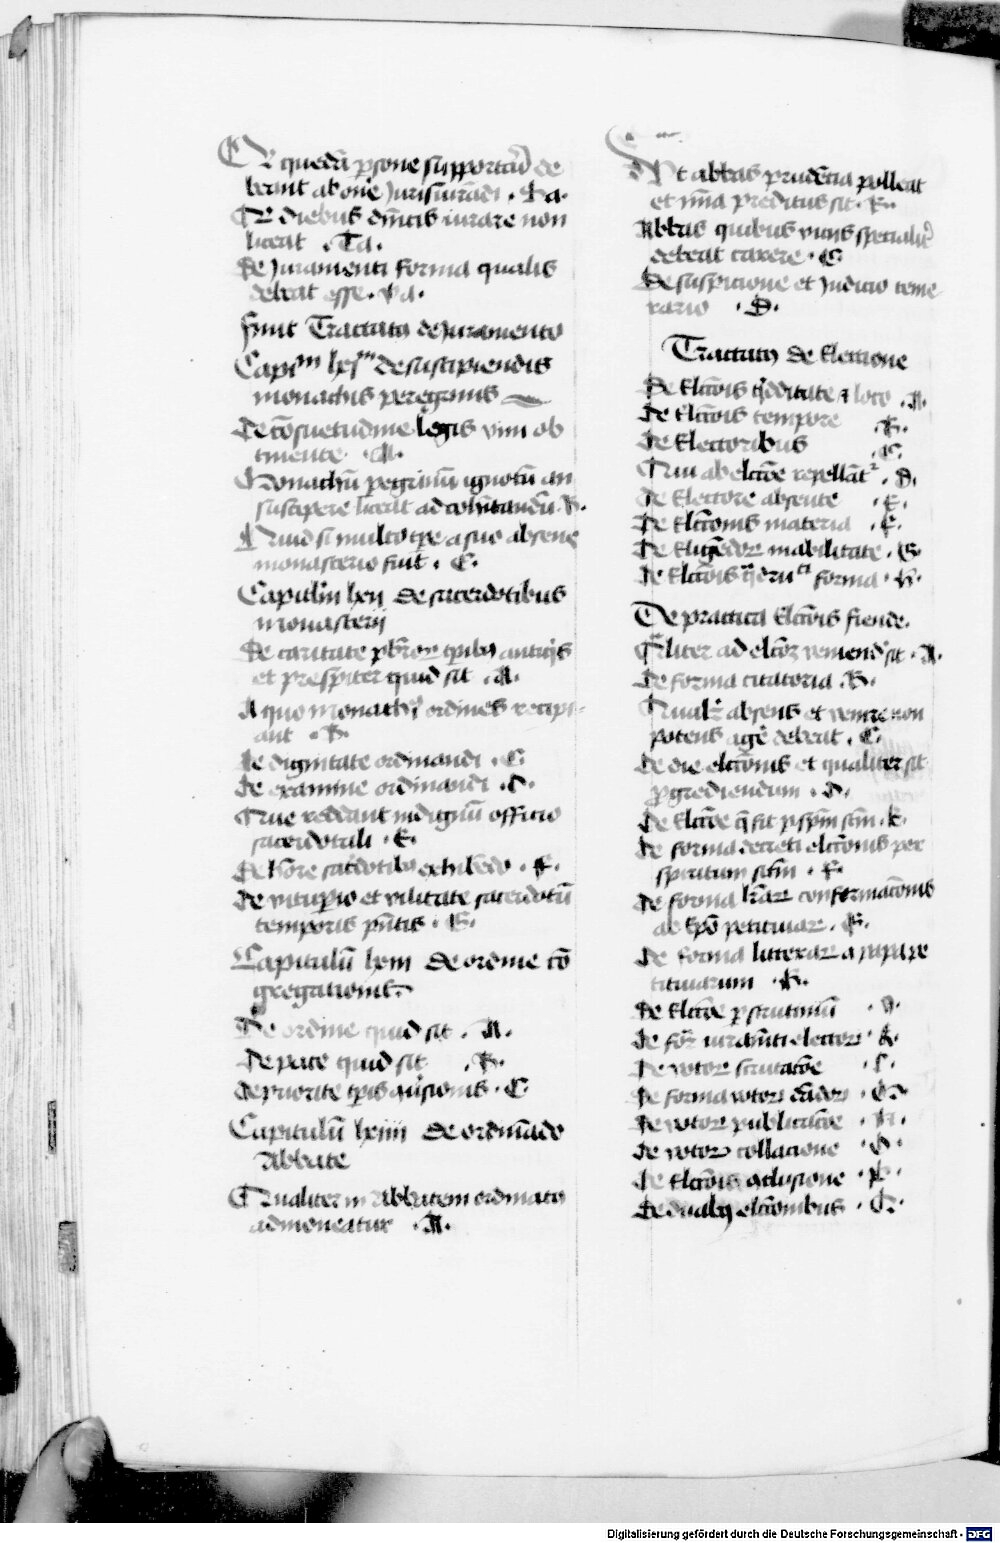 Qr quedā ꝑsone supportari de
beant ab onͤ Jurisiurādi . Ra.
Qr diebus dn̄icis iurare non
liceat . Ta.
de Juramenti forma qualis
debeat esse . va.
finit Tractatus de Juramento
Capᵐ lxjᵐ de suscipiendis
monachis peregrinis
De cōsuetudine legis vim ob
tinente . A.
Monachū pegrinū ignotū an
suscipere liceat ad cohītandū . B.
Quid si multo tp̄e a suo absens
monasterio fuit . C.
Capitulū lxij de sacerdotibus
monasterij
De caritate pb̄ror tp̄ibus antiq̄s
et presbiter quid sit . A.
A quo monachi ordines recipi
ant . B.
de dignitate ordinandi . C.
de examine ordinandi . D.
Que reddant indignū officio
sacerdotali . E.
de hōre sac̄dotibꝫ exhibēdo . F.
de vituꝑio et vilitate sacerdotū
temporis pn̄tis . G.
Capitulū lxiij de ordine cō
gregationis
De ordine quid sit . A.
De pace quid sit . B.
de priorite tꝑis ꝯūsionis . C.
Capitulū lxiiij de ordinādo
Abbate
Qualiter in Abbatem ordinatꝰ
admoneatur . A.
Ut abbas prudēcia polleat
et preditus sit . B.
Abbas quibus vicijs specialit̄
debeat carere . C.
De suspicione et Judicio teme
rario . D.
Tractatus de Electione
De Elc̄onis q̄dditate et loco . A.
de Elc̄onis tempore . B.
de Electoribus . C.
Qui ab elc̄oe repellāt² . D.
de Electore absente . E.
De Elc̄onis materia . F.
de Eligēdor inabilitate . G.
de Elc̄onis forma . H.
De practica Elc̄onis fiende.
Qͣliter ad elc̄oꝫ veniend̄ sit . A.
de forma citatoria . B.
Qualr̄ absens et venire non
potens agē debeat . C.
de die elc̄onis et qualiter sit
ꝓgrediendum . D.
de Elc̄oe q̄ fit ꝑ spm̄ scm̄ . E.
de forma decreti elc̄onis per
spiritum scm̄ . F.
de forma lr̄ar confirmac̄onis
ab Epō petituar . G.
de forma litterar a papa pe
titiuarum . H.
de Elc̄oe ꝑ scrutiniū . I.
de for̄ iuramti elector . K.
de votor scrutac̄oe . L.
de forma votor dādor . M.
de votor publicac̄oe . N.
de votor collacione . O.
de Elc̄onis ꝯclusione . P.
de dualꝫ elc̄onibus . Q.
Digitalisierung gefördert durch die Deutsche Forschungsgemeinschaft - DFG